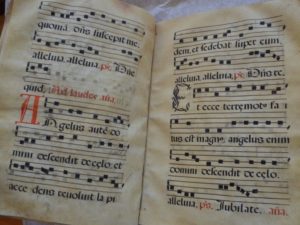 quoniā dns suscepit me
alleluia. alleluia. ps. Dñe
quid. ad laudes. aña.
Angelus autē do
mini descendit de celo. et
acce dens revoluit la pi
dem. et sedebat super eum
alleluia. alleluia. ps. Dñs re.
Et ecce terremotꝰ fa
tus est magnꝰ. angelus enim
domini descendit de celo.
alleluia. ps. Jubilate. aña.